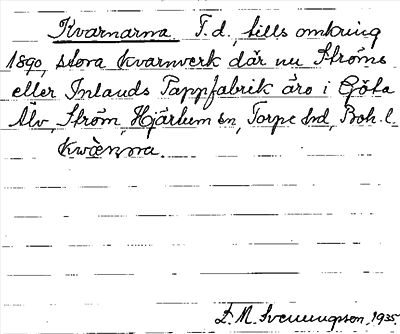 Kvarnarna. F.d., tills omkring
1890, stora kvarnverk där nu Ströms
eller Inlands Pappfabrik äro i Göta
Älv, Ström, Hjärtum sn, Torpe hd, Boh. l.
Kwàṇṇa.
E. M. Svenungsson, 1935